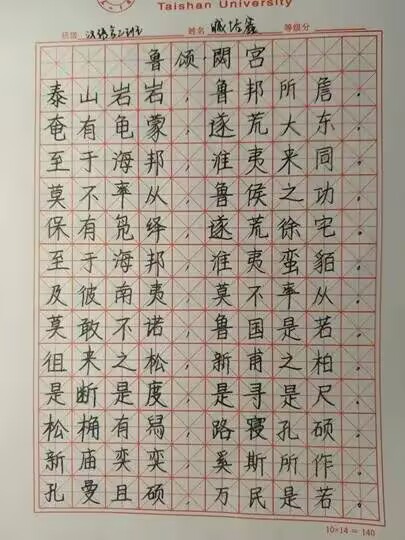 Taishan University
班级 姓名 等级分
鲁颂·閟宫
泰山岩岩，鲁邦所詹。
奄有龟蒙，遂荒大东。
至于海邦，淮夷来同。
莫不率从，鲁侯之功。
保有凫绎，遂荒徐宅。
至于海邦，淮夷蛮貊。
及彼南夷，莫不率从。
莫敢不诺，鲁国是若。
徂来之松，新甫之柏。
是断是度，是寻是尺。
松桷有舄，路寝孔硕。
新庙奕奕，奚斯所作。
孔曼且硕，万民是若。
10×14=140